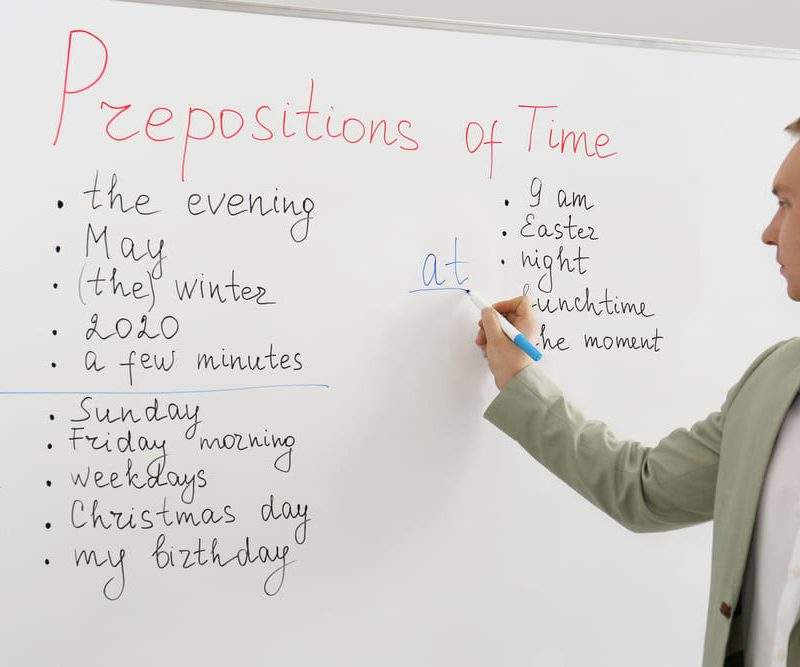 Prepositions of Time
• the evening
• May
• (the) winter
• 2020
• a few minutes
• Sunday
• Friday morning
• weekdays
• Christmas day
• my birthday
at
• 9 am
• Easter
• night
lunchtime
the moment